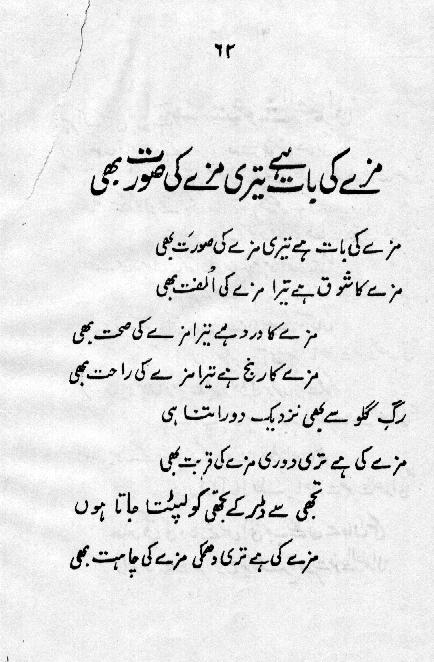 ۶۲
مزے کی بات ہے تیری مزے کی صورت بھی
مزے کی بات ہے تیری مزے کی صورت بھی
مزے کا شوق ہے تیرا مزے کی الُفت بھی
مزے کا درد ہے تیرا مزے کی صحت بھی
مزے کا رنج ہے تیرا مزے کی راحت بھی
رگِ گلو سے بھی نزدیک دور اتنا ہی
مزے کی ہے تری دوری مزے کی قربت بھی
تجھی سے ڈر کے تجھی کو لپٹتا جاتا ہوں
مزے کی ہے تری دھمکی مزے کی چاہت بھی